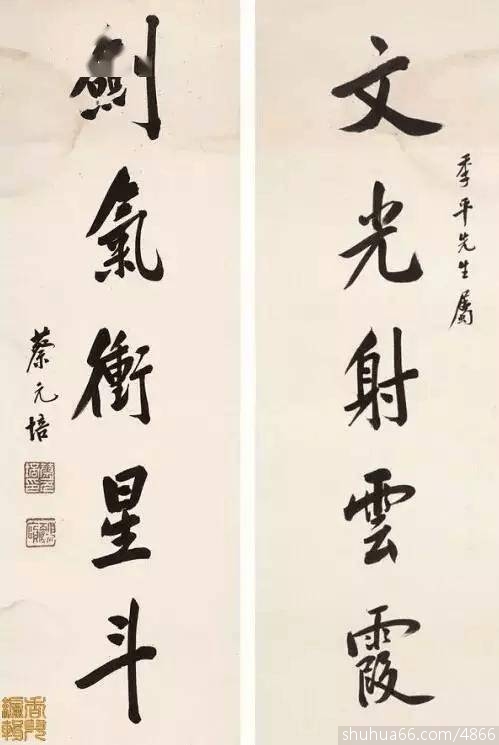 文光射雲霞
季平先生屬
劍氣衝星斗
蔡元培
shuhua66.com/4866